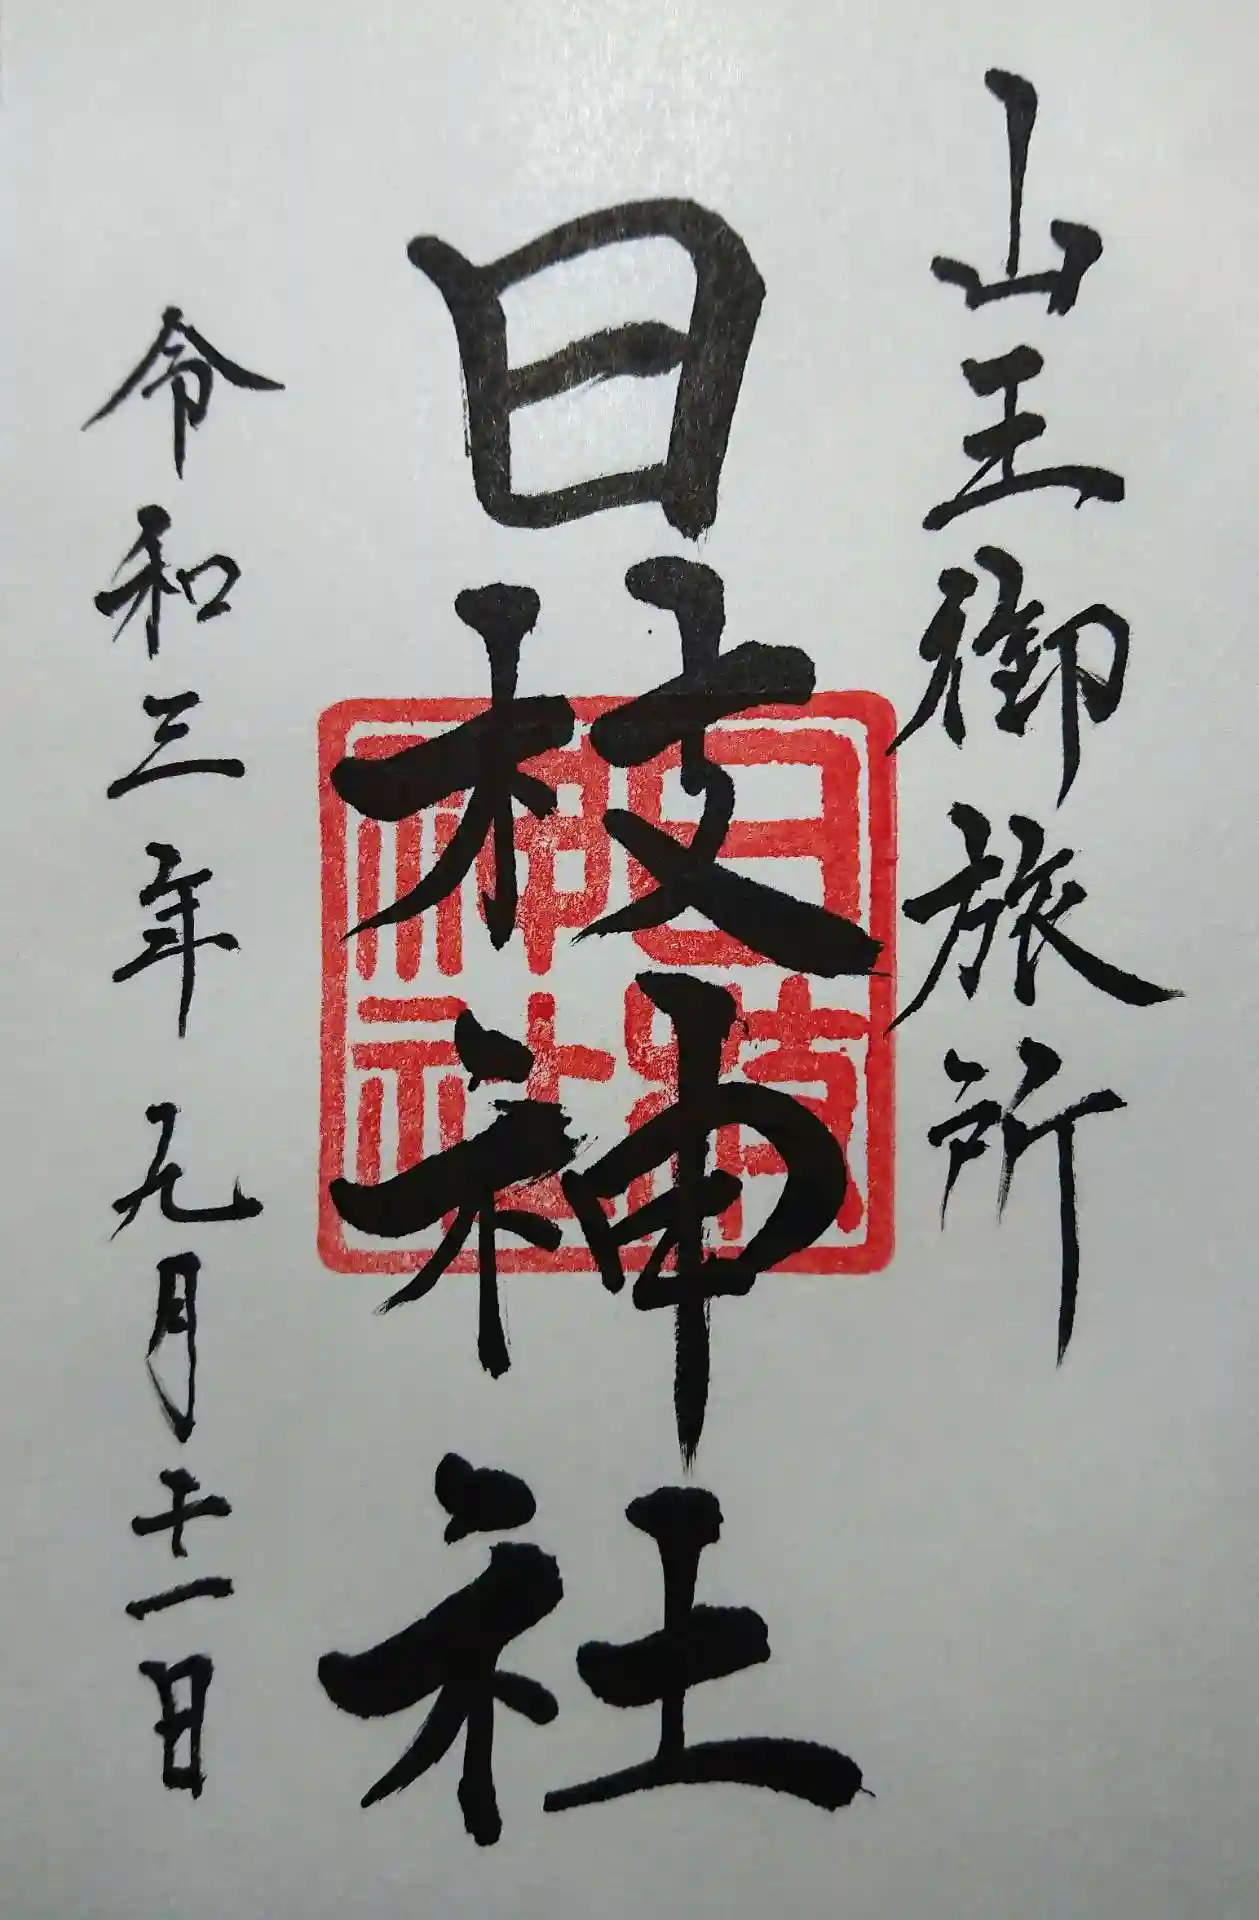 山王御旅所
日枝神社
令和三年九月二十一日
日枝
神社